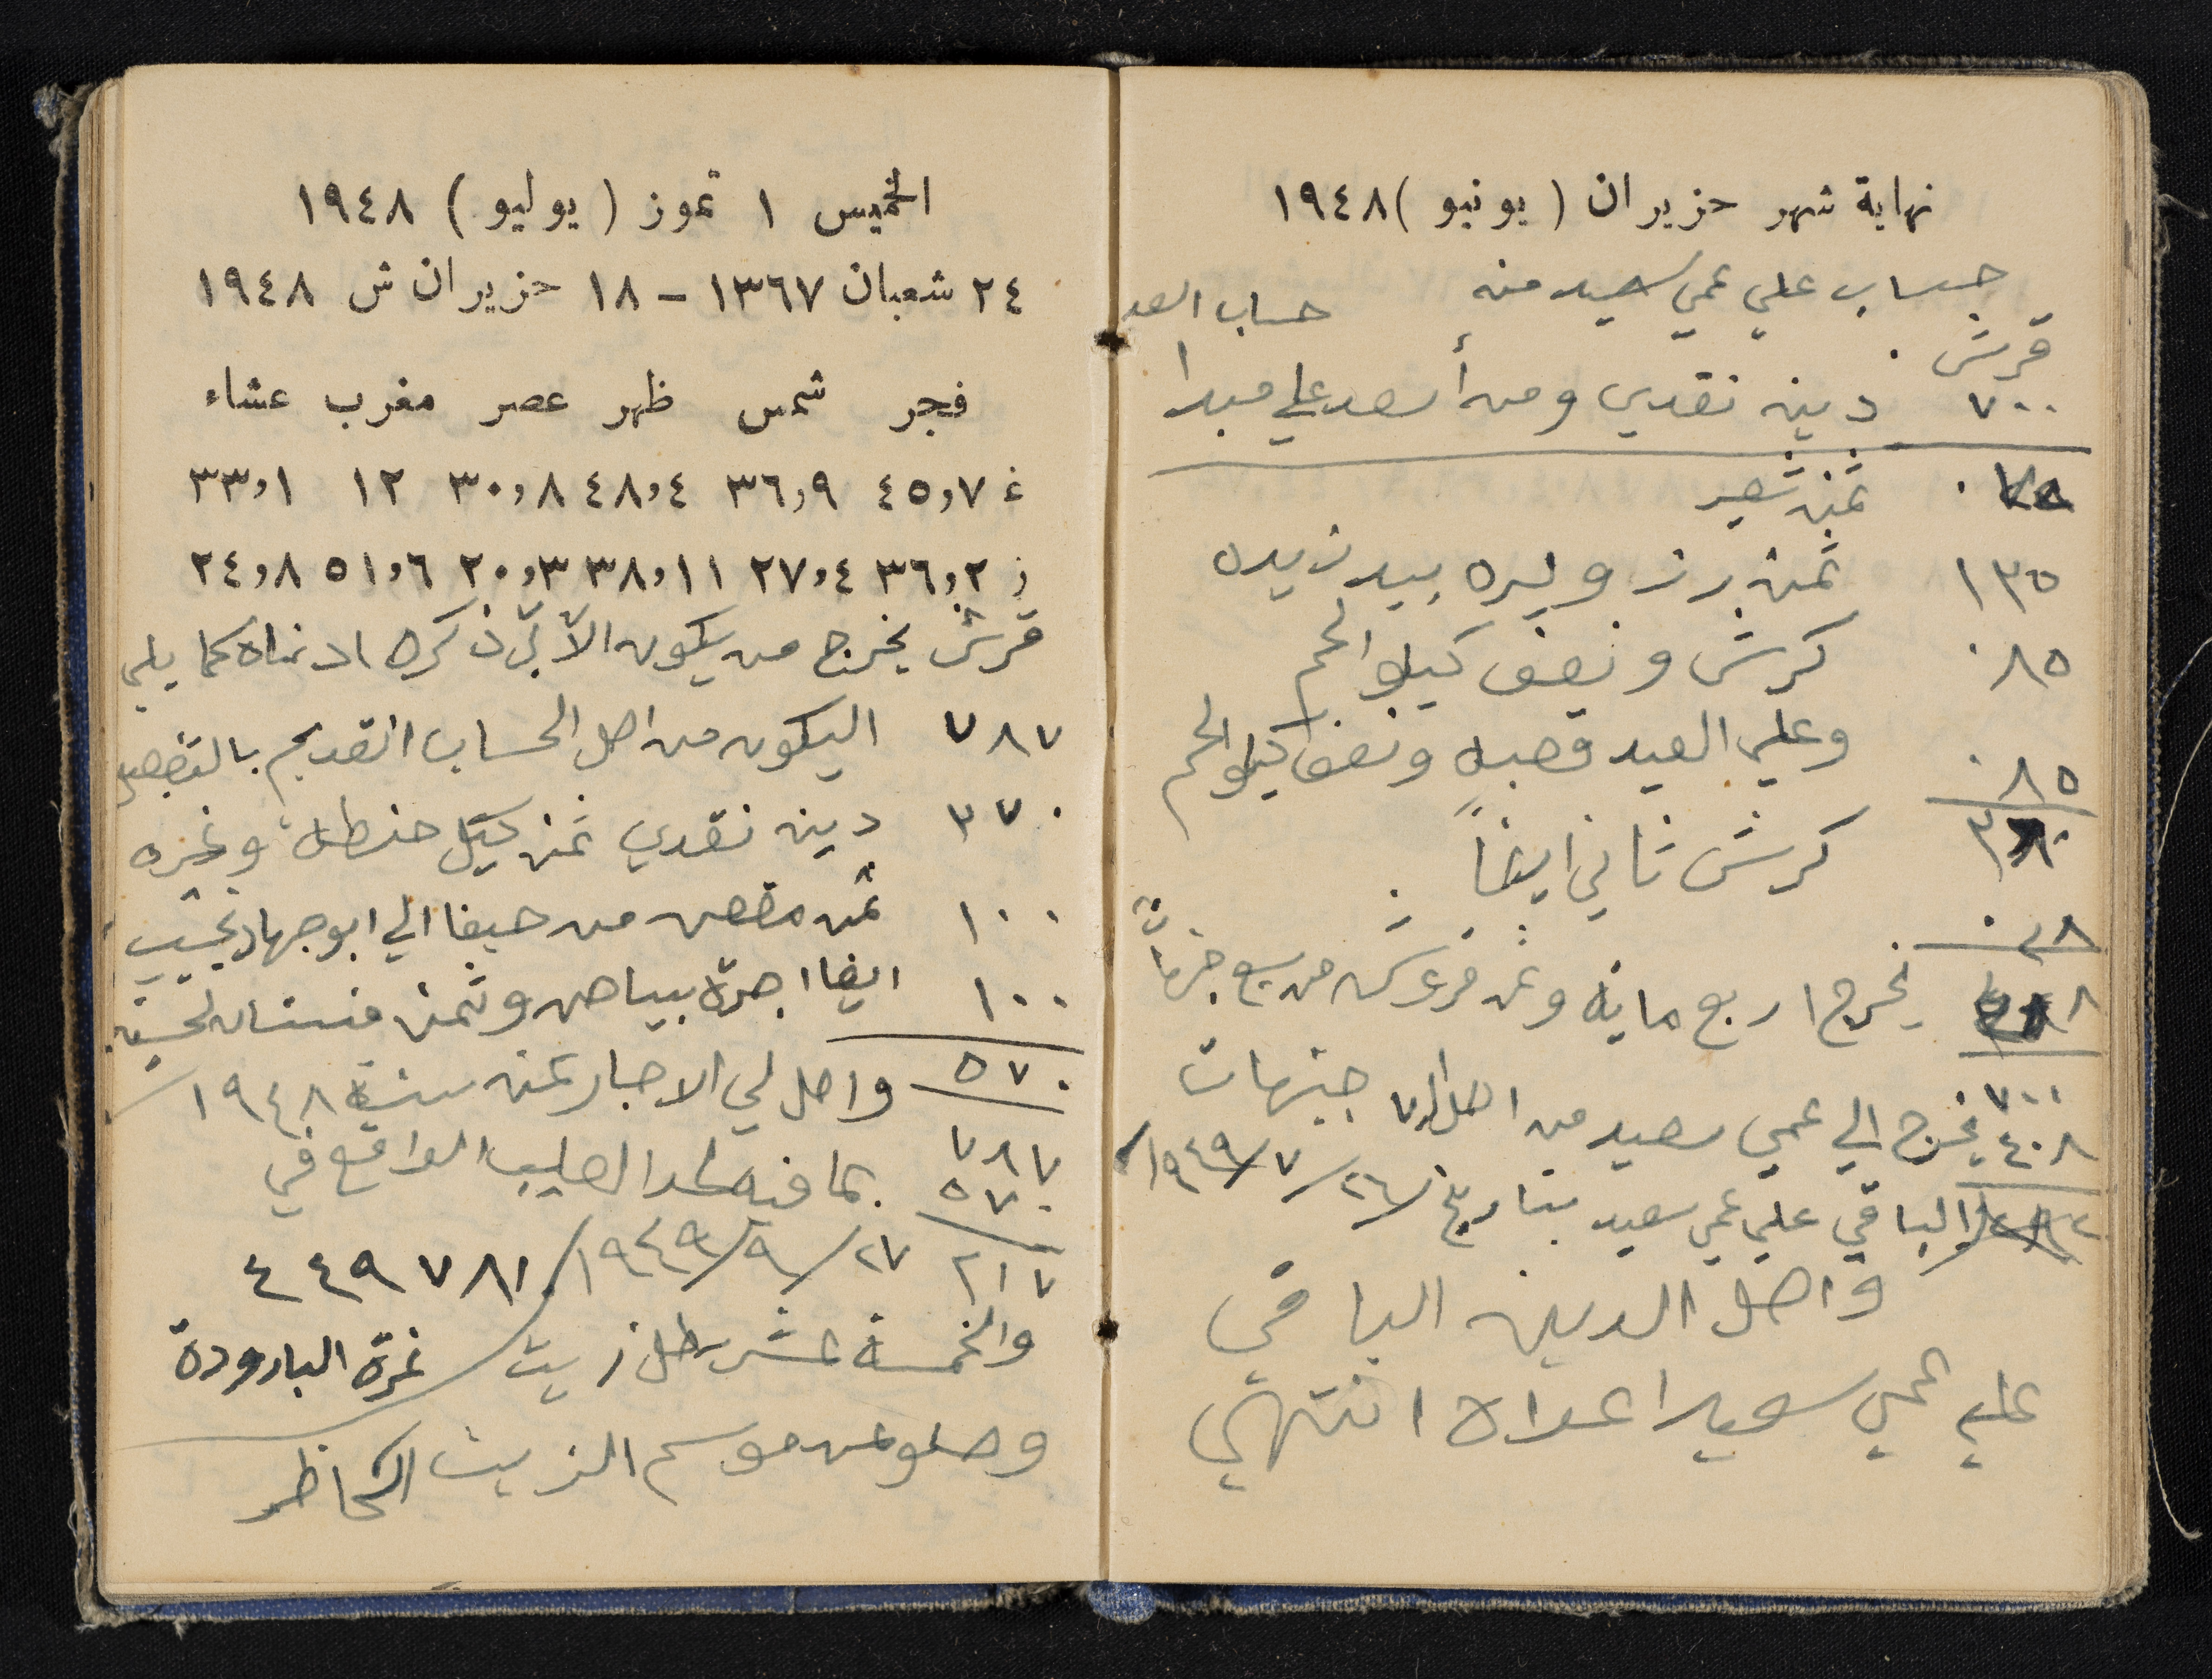 نهاية شهر حزيران ( يونيو ) ١٩٤٨
حساب علي عمي سعيد منه
حساب العد
قرش
٧٠٠ دينه نقدي ومن أسعد علي مبدا
٠٧٥ ثمن شعير
١٣٥ ثمنه رز وليره بيد زيده
٠٨٥ كرش ونصف كيلو الحم
وعلي العيد قصبه ونصف كيلو الحم
٠٨٥
٣٨٠ كرش ثاني ايضاً
٠٢٨
٤٠٨ يخرج اربع ماية من سبع
٧٠٠
٤٠٨ يخرج الي عمي سعيد من اصل ال٧ جنيهات
الباقي علي عمي سعيد بتاريخ ٢٦/٧/١٩٤٩
واصل الدينه الباقي
علي عمي سعيد اعلاه انتهي
الخميس ١ تموز ( يوليو ) ١٩٤٨
٢٤ شعبان ١٣٦٧ - ١٨ حزيران ش ١٩٤٨
فجر شمس ظهر عصر مغرب عشاء
غ ٤٥,٧ ٣٦,٩ ٤٨,٤ ٣٠,٨ ١٢ ٣٣,١
ز ٣٦,٢ ٢٧,٤ ٣٨,١١ ٢٠,٣ ٥١,٦ ٢٤,٨
قرش يخرج من يكون الآتي ذكره ادناه كما يلي
٧٨٧ اليكون من اصل الحساب القديم
٣٧٠ دينه نقدي ثمن كيل حنطة وغيره
١٠٠ ثمن من حيفا الي ابو جهاد نجيب
١٠٠ ايضا اجرة بياض وثمن فستان
٥٧٠ واصل لي الاجار عنه سنة ١٩٤٨
٧٨٧ بما فيه الصليب الواقع في
٥٧٠
٢١٧ ٢٧/٩/١٩٤٩ ٤٤٩٧٨١
والخمسة عشر رطل زيت نمرة البارودة
وصلو من موسم الزيت